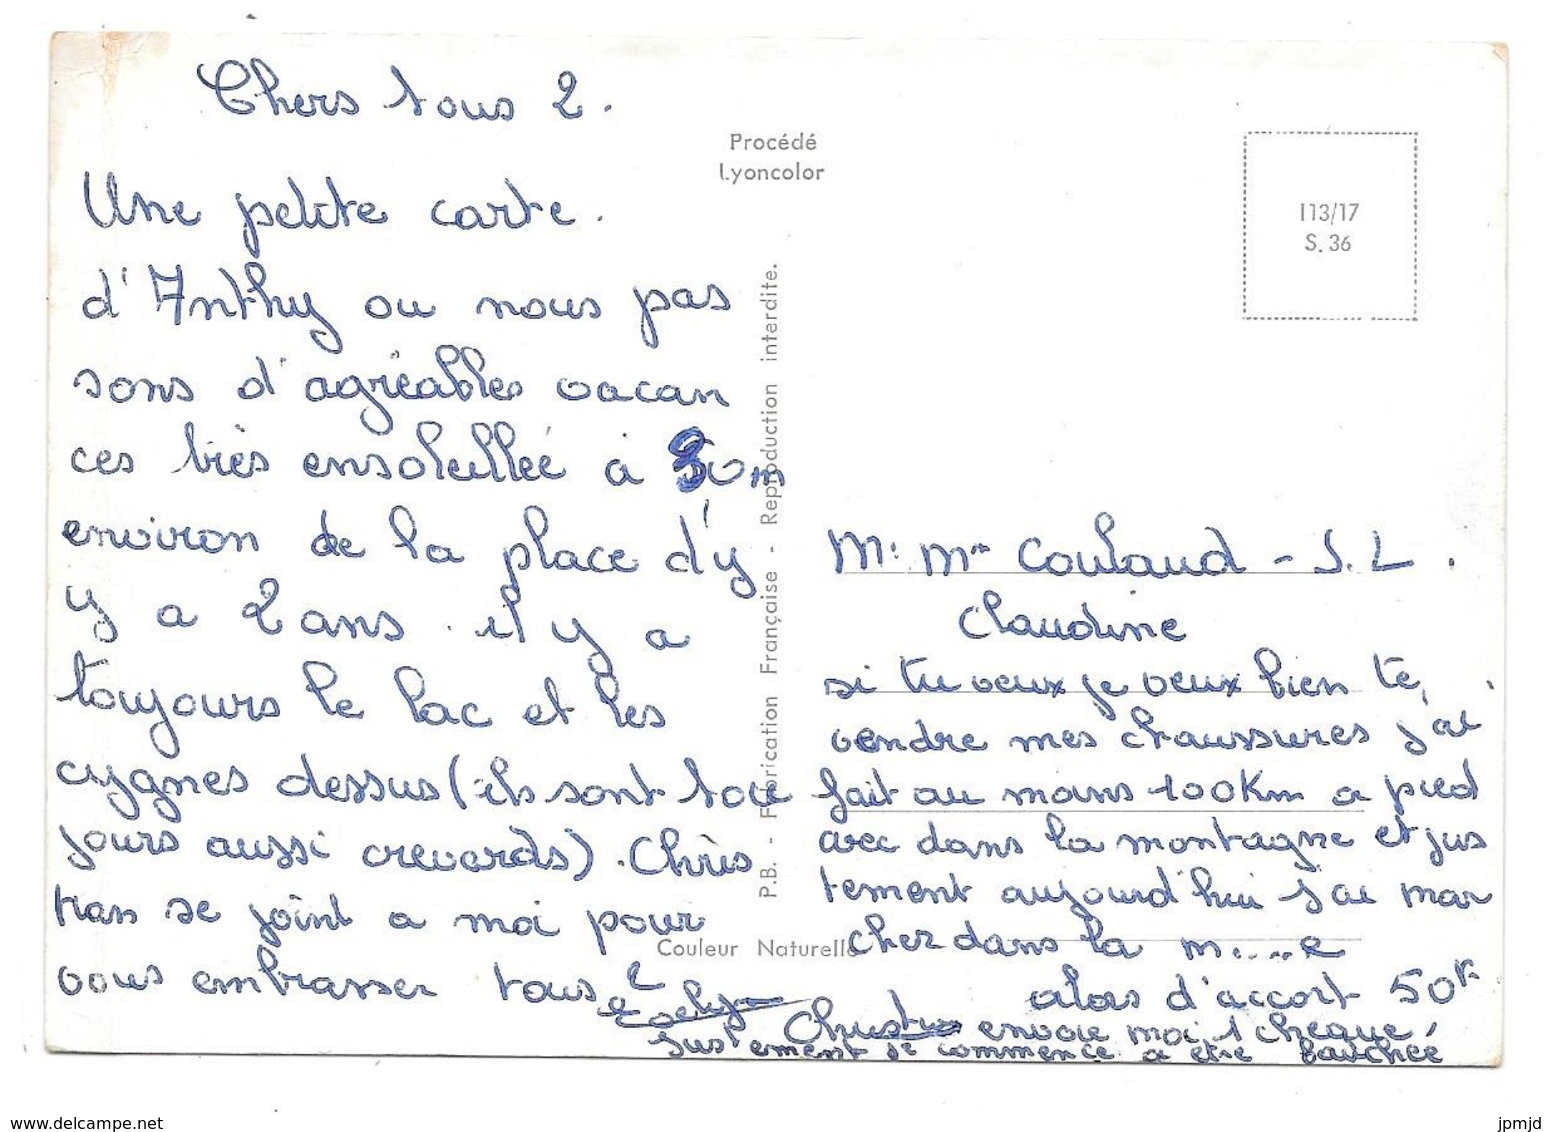 Chers tous 2.
Une petite carte.
d'Anthy ou nous pas
sons d'agréables vacan
ces très ensoleillée à 30m
environ de la place d'y
y a 2 ans. il y a
toujours le lac et les
cygnes dessus (ils sont tou
jours aussi crevards). Chris
tian se joint a moi pour
vous embrasser tous 2
Christian
Procédé
Lyoncolor
P.B. - Fabrication Française - Reproduction interdite.
Couleur Naturelle
113/17
S. 36
Mr Mme Coulaud - J.L.
Claudine
si tu veux je veux bien te
vendre mes chaussures j'ai
fait au moins 100Km a pied
avec dans la montagne et jus
tement aujourd'hui j'ai mar
cher dans la m.....e
alors d'accort 50F
envoie moi 1 chèque,
Justement je commence a être fauchée
www.delcampe.net
jpmjd